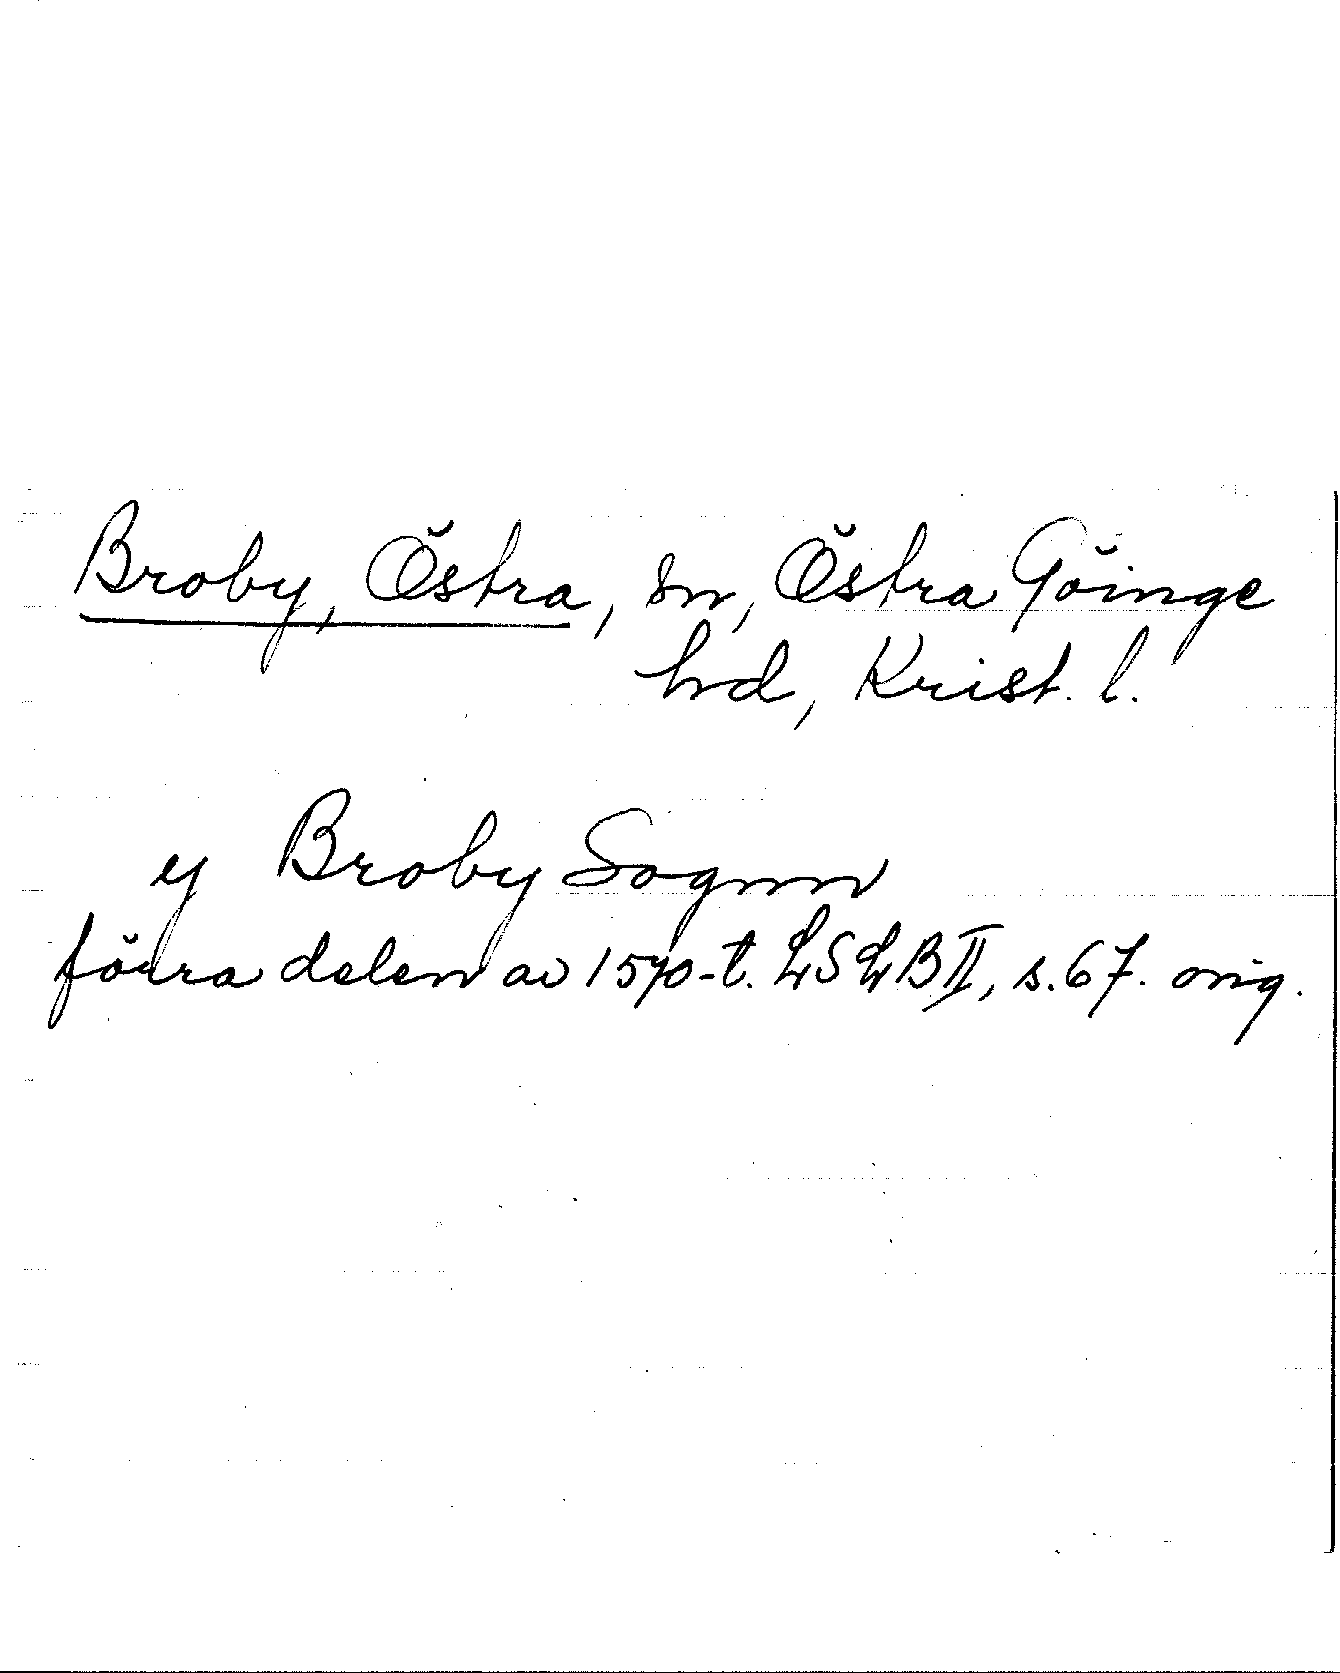 Broby, Östra, sn, Östra Göinge
hd, Krist. l.
y Broby Sognn
förra delen av 1570-t. LSLB II, s. 67. orig.